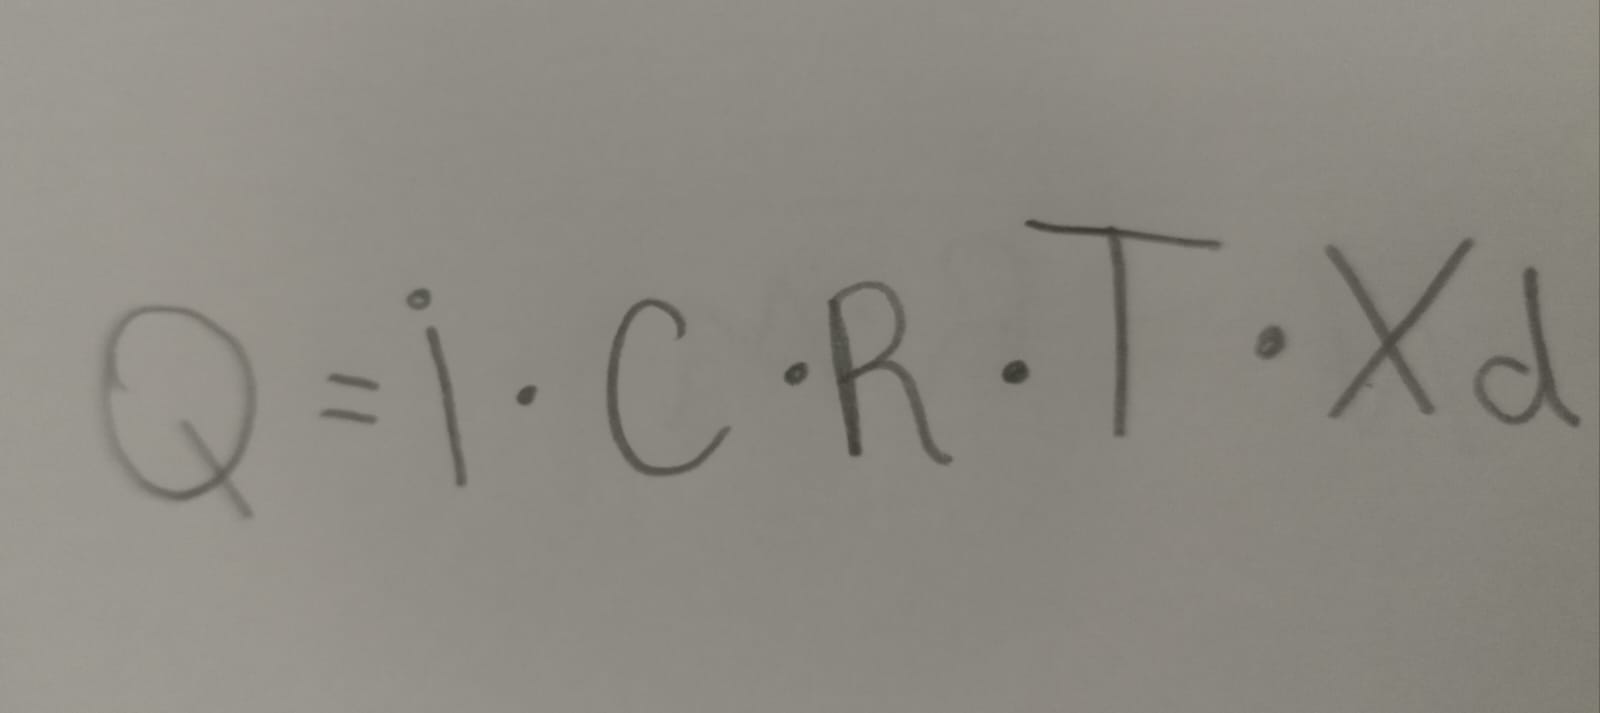 Q = i · C · R · T · Xd